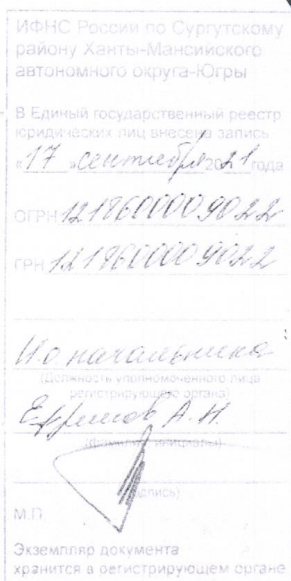 ИФНС России по Сургутскому
району Ханты-Мансийского
автономного округа-Югры
В Единый государственный реестр
юридических лиц внесена запись
«17» сентября 2021 года
ОГРН 1218600009022
ГРН 1218600009022
И.о. начальника
(Должность уполномоченного лица
регистрирующего органа)
Ефимов А.Н.
(фамилия, инициалы)
(подпись)
М.П.
Экземпляр документа
хранится в регистрирующем органе